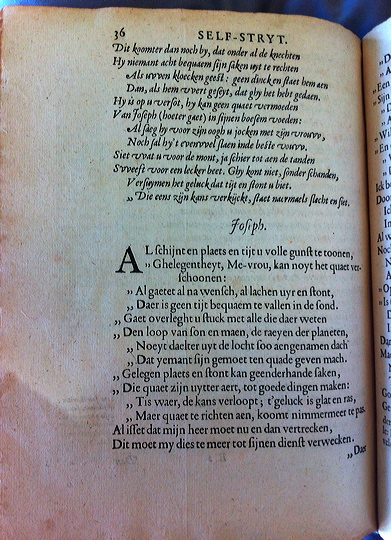 36 SELF-STRYT.
Dit koomter dan noch by, dat onder al de knechten
Hy niemant acht bequaem sijn saken uyt te rechten
Als uwen kloecken geest: geen dincken staet hem aen
Dan, als hem wert geseyt, dat ghy het hebt gedaen.
Hy is op u versot, hy kan geen quaet vermoeden
Van Joseph (hoeter gaet) in sijnen boesem voeden:
Al saeg hy voor zijn oogh u jocken met zijn vrouw,
Noch sal hy't evenwel slaen inde beste vouw.
Siet wat u voor de mont, ja schier tot aen de tanden
Sweeft voor een lecker beet. Ghy kont niet, sonder schanden,
Versuymen het geluck dat tijt en stont u biet.
„ Die eens zijn kans verkijckt, staet naermaels slecht en siet.
Joseph.
AL schijnt en plaets en tijt u volle gunst te toonen,
„ Ghelegentheyt, Me-vrou, kan noyt het quaet ver-
schoonen:
„ Al gaetet al na wensch, al lachen uyr en stont,
„ Daer is geen tijt bequaem te vallen in de sond.
„ Gaet overleght u stuck met alle die daer weten
„ Den loop van son en maen, de raeyen der planeten,
„ Noeyt daelter uyt de locht soo aengenamen dach
„ Dat yemant sijn gemoet ten quade geven mach.
„ Gelegen plaets en stont kan geenderhande saken,
„ Die quaet zijn uytter aert, tot goede dingen maken:
„ Tis waer, de kans verloopt; t'geluck is glat en ras,
„ Maer quaet te richten aen, koomt nimmermeer te pas.
Al isset dat mijn heer moet nu en dan vertrecken,
Dit moet my dies te meer tot sijnen dienst verwecken.
„ Daer